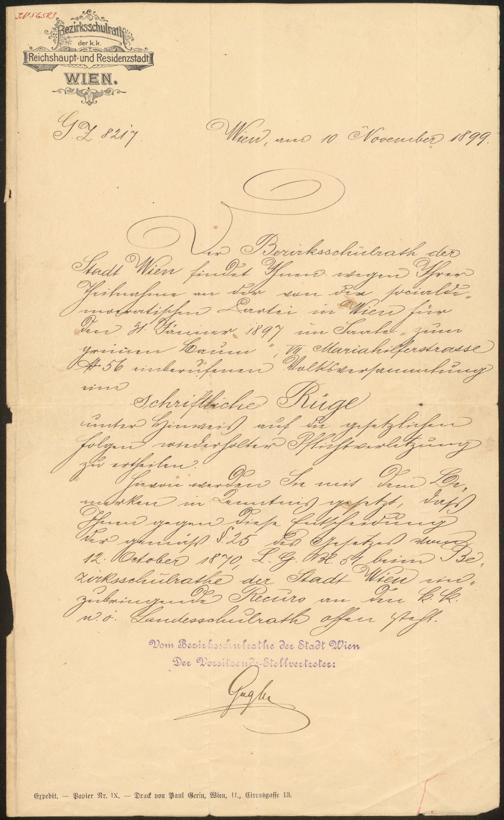 Bezirksschulrath
der k.k.
Reichshaupt- und Residenzstadt
WIEN.
G Z 8217
Wien, am 10 November 1899.
Der Bezirksschulrath der
Stadt Wien findet Ihnen wegen Ihrer
Theilnahme an der von der sozialde-
mocratischen Partei in Wien für
den 31 Jänner 1897 im Saale „zum
grünen Baum“, VII Mariahilferstrasse
№ 56 einberufenen Volksversammlung
eine
Schriftliche Rüge
unter Hinweis auf die gesetzlichen
Folgen wiederholter Pflichtverletzung
zu ertheilen.
Hievon werden Sie mit dem Be-
merken in Kenntnis gesetzt, dass
Ihnen gegen diese Entscheidung
der gemäß § 25 des Gesetzes vom
12. October 1870, L. G. Bl. 51 beim Be-
zirksschulrathe der Stadt Wien ein-
zubringende Recurs an den k. k.
n. ö. Landesschulrath offen steht.
Vom Bezirksschulrathe der Stadt Wien
Der Vorsitzende-Stellvertreter:
Gugler
Expedit. — Papier Nr. IX. — Druck von Paul Gerin, Wien, II., Circusgasse 13.